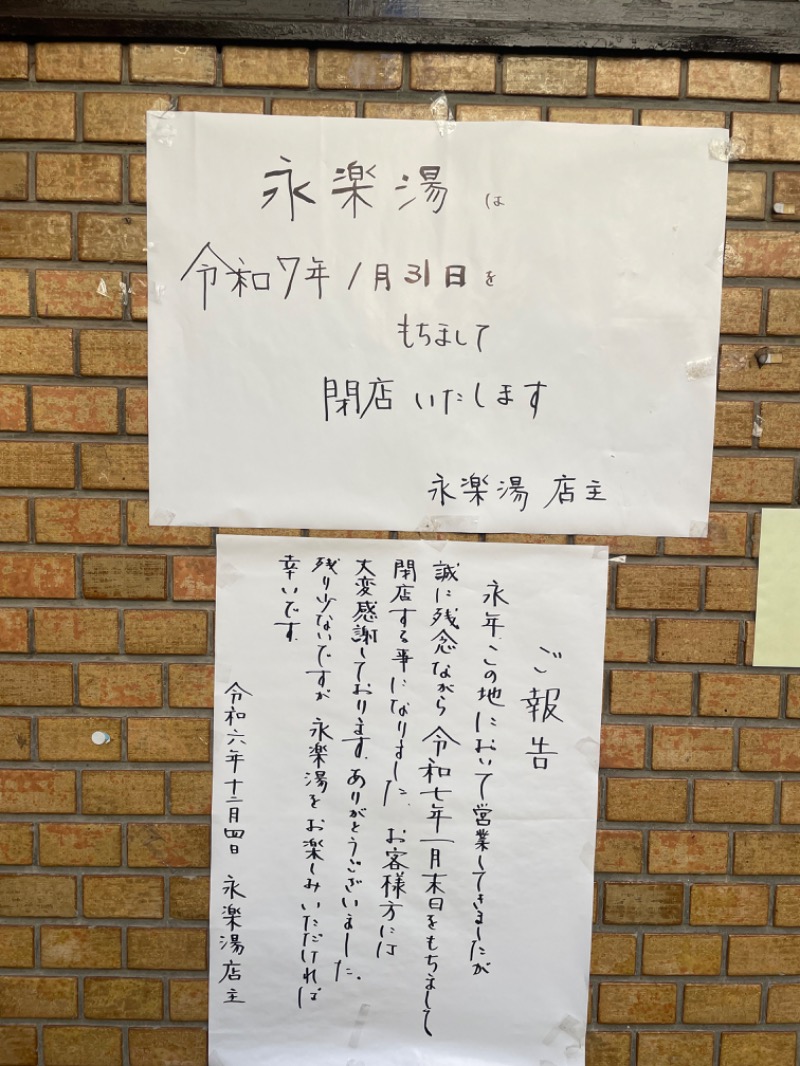 永楽湯は
令和7年1月31日を
もちまして
閉店いたします
永楽湯 店主
ご報告
永年、この地において営業してきましたが
誠に残念ながら 令和七年一月末日をもちまして
閉店する事になりました。お客様方には
大変感謝しております。ありがとうございました。
残り少ないですが 永楽湯をお楽しみいただければ
幸いです。
令和六年十二月四日 永楽湯店主